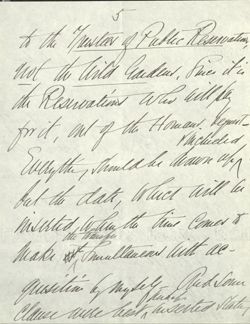 5
to the Trustees of Public Reservations,
not the Wild Gardens, since it is
the Reservations who will pay
for it, out of the Homans. bequest
& included
Everything should be drawn up,
but the date, which will be
inserted when the time comes to
the transfer
make simultaneous with ac-
quisition by myself. And some
clause were inserted